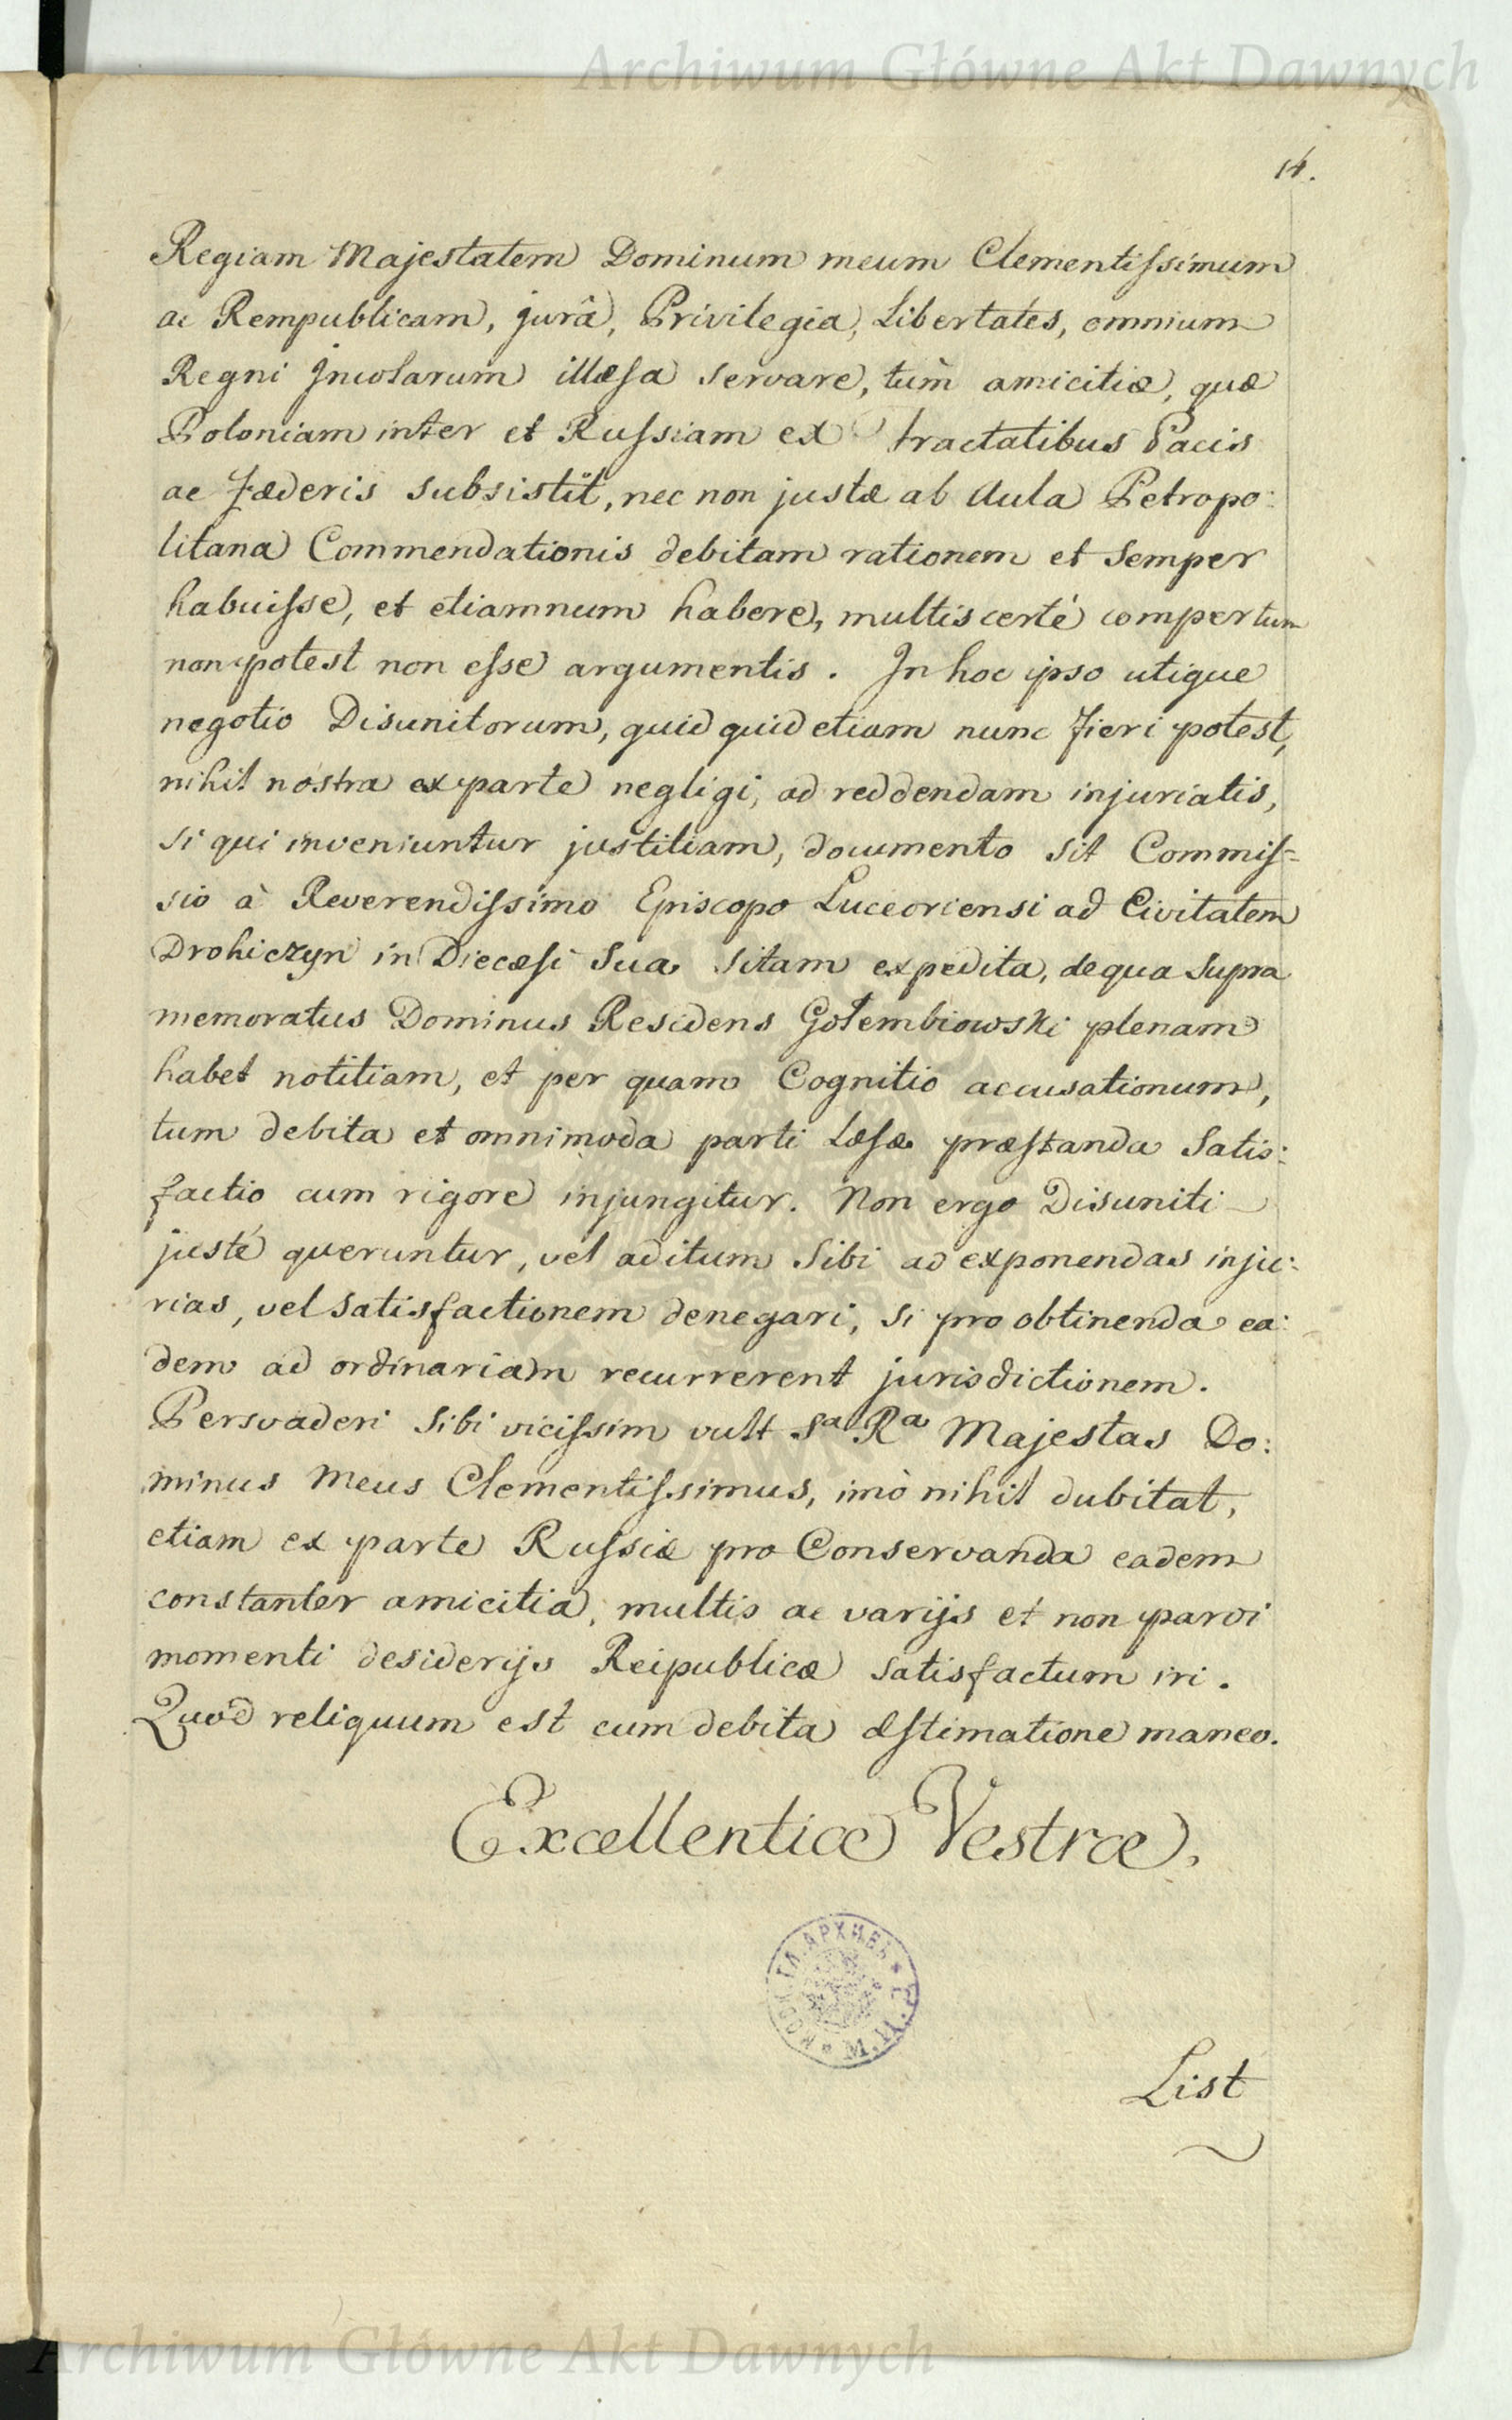 Archiwum Główne Akt Dawnych
14.
Regiam Majestatem Dominum meum Clementiſsimum
ac Rempublicam, jurâ, Privilegia, Libertates, omnium
Regni Jncolarum illæſa servare, tùm amicitiæ, quæ
Poloniam inter et Ruſsiam ex tractatibus Pacis
ac Fæderis subsistit, nec non justæ ab Aula Petropo:
litana Commendationis debitam rationem et Semper
habuiſse, et etiamnum habere, multis certé compertum
non potest non eſse argumentis. Jn hoc ipso utique
negotio Disunitorum, quidquid etiam nunc Fieri potest,
nihil nostra ex parte negligi, ad reddendam injuriatis,
si qui inveniuntur justitiam, documento sit Commiſ=
sio à Reverendiſsimo Episcopo Luceoriensi ad Civitatem
Drohiczyn in Diecæſi Sua Sitam expedita, de qua Supra
memoratus Dominus Residens Gołembiowski plenam
habet notitiam, et per quam Cognitio accusationum,
tum debita et omnimoda parti Læſæ præſtanda Satis:
factio cum rigore injungitur. Non ergo Disuniti
justé queruntur, vel aditum Sibi ad exponendas inju:
rias, vel Satisfactionem denegari, Si pro obtinenda ea:
dem ad ordinariam recurrerent jurisdictionem.
Persvaderi Sibi viciſsim vult Sa Ra Majestas Do:
minus Meus Clementiſsimus, imò nihil dubitat,
etiam ex parte Ruſsiæ pro Conservanda eadem
constanter amicitia, multis ac varijs et non parvi
momenti desiderijs Reipublicæ Satisfactum iri.
Quod reliquum est cum debita æſtimatione maneo.
Excellentiæ Vestræ,
МОСК. ГЛ. АРХИВЪ * М. И. Д. *
List
Archiwum Główne Akt Dawnych